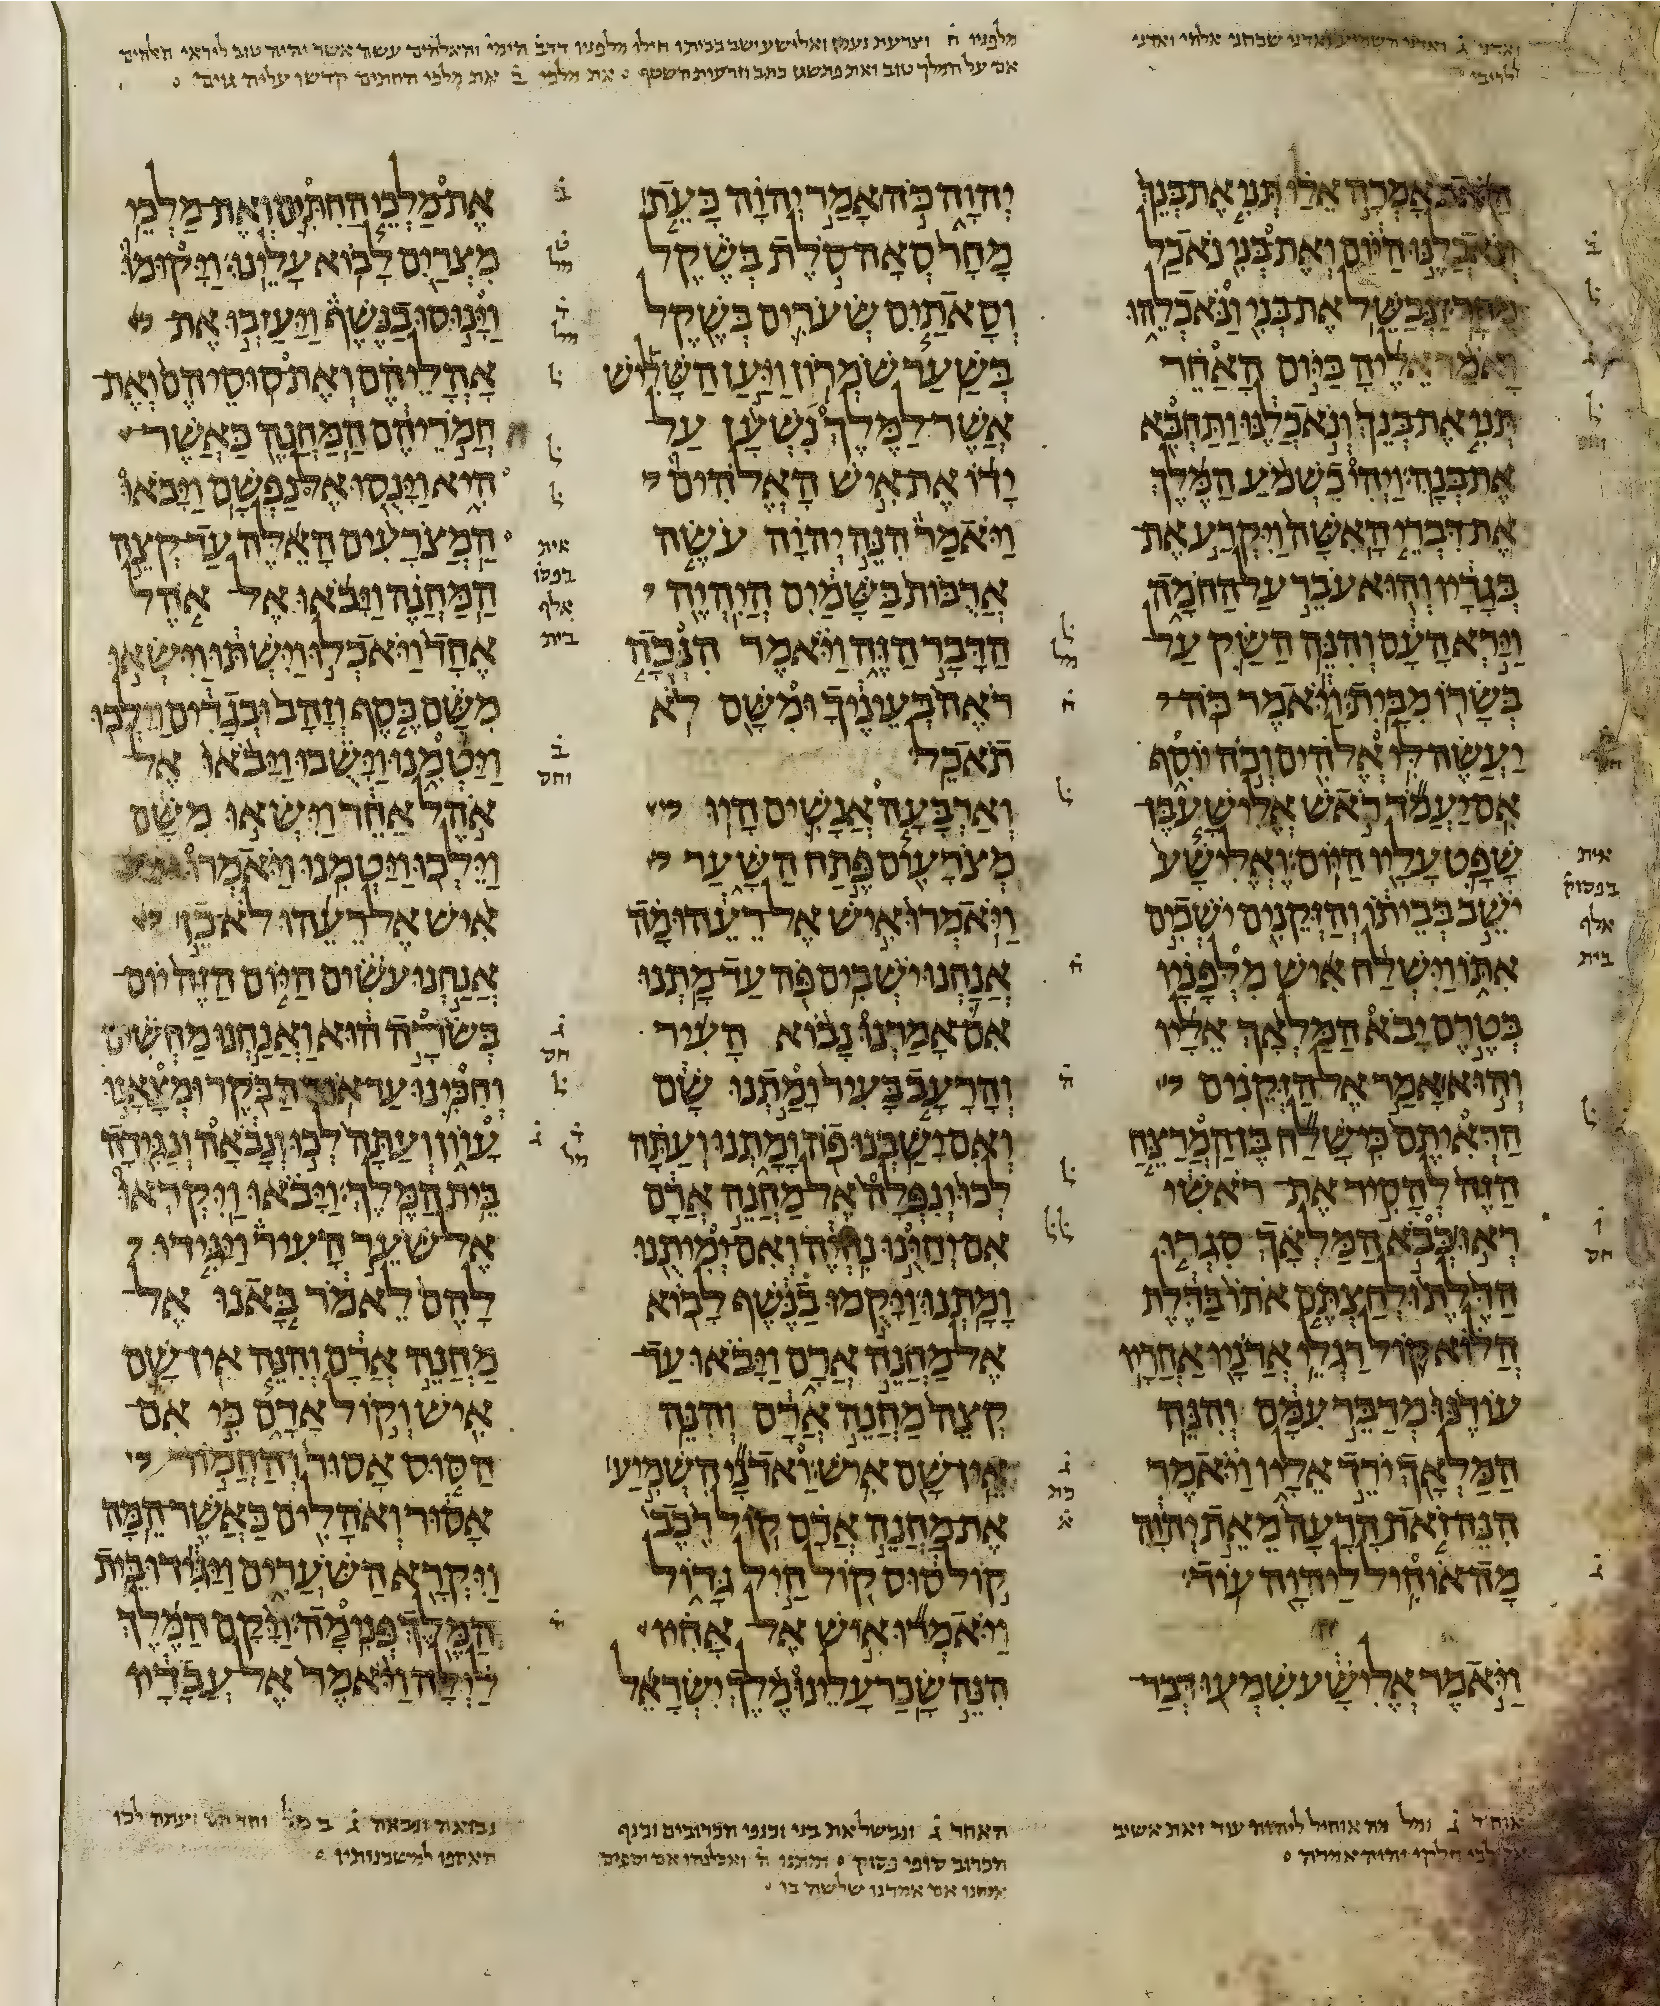 ואדני ג ואדני השמיע ואדני שבחני אלהי ואדני
לריבי
מלפניו ח וצרעת נעמן ואלישע ישב בביתו חילו מלפניו דהב הימי והאלהים עשה אשר יהיה טוב ליראי האלהים
אם על המלך טוב ואת פתשגן כתב וזרעות השטף את מלכי ב את מלכי החתים קדשו עליה גוים
הזאת אמרה אלי תני את בנך
ונאכלנו היום ואת בני נאכל
מחר ונבשל את בני ונאכלהו
ואמר אליה ביום האחר
תני את בנך ונאכלנו ותחבא
את בנה ויהי כשמע המלך
את דברי האשה ויקרע את
בגדיו והוא עבר על החמה
וירא העם והנה השק על
בשרו מבית ויאמר כה
יעשה לי אלהים וכה יוסף
אם יעמד ראש אלישע בן
שפט עליו היום ואלישע
ישב בביתו והזקנים ישבים
אתו וישלח איש מלפניו
בטרם יבא המלאך אליו
והוא אמר אל הזקנים
הראיתם כי שלח בן המרצח
הזה להסיר את ראשי
ראו כבא המלאך סגרו
הדלת ולחצתם אתו בדלת
הלוא קול רגלי אדניו אחריו
עודנו מדבר עמם והנה
המלאך ירד אליו ויאמר
הנה זאת הרעה מאת יהוה
מה אוחיל ליהוה עוד
ויאמר אלישע שמעו דבר
יהוה כה אמר יהוה כעת
מחר סאה סלת בשקל
וסאתים שערים בשקל
בשער שמרון ויען השליש
אשר למלך נשען על
ידו את איש האלהים
ויאמר הנה יהוה עשה
ארבות בשמים היהיה
הדבר הזה ויאמר הנכה
ראה בעיניך ומשם לא
תאכל
וארבעה אנשים היו
מצרעים פתח השער
ויאמרו איש אל רעהו מה
אנחנו ישבים פה עד מתנו
אם אמרנו נבוא העיר
והרעב בעיר ומתנו שם
ואם ישבנו פה ומתנו ועתה
לכו ונפלה אל מחנה ארם
אם יחינו נחיה ואם ימיתנו
ומתנו ויקמו בנשף לבוא
אל מחנה ארם ויבאו עד
קצה מחנה ארם והנה
אין שם איש ואדני השמיע
את מחנה ארם קול רכב
קול סוס קול חיל גדול
ויאמרו איש אל אחיו
הנה שכר עלינו מלך ישראל
את מלכי החתים ואת מלכי
מצרים לבוא עלינו ויקומו
וינוסו בנשף ויעזבו את
אהליהם ואת סוסיהם ואת
חמריהם המחנה כאשר
היא וינסו אל נפשם ויבאו
המצרעים האלה עד קצה
המחנה ויבאו אל אהל
אחד ויאכלו וישתו וישאו
משם כסף וזהב ובגדים וילכו
ויטמנו וישבו ויבאו אל
אהל אחר וישאו משם
וילכו ויטמנו ויאמרו
איש אל רעהו לא כן
אנחנו עשים היום הזה יום
בשרה הוא ואנחנו מחשים
וחכינו עד אור הבקר ומצאנו
עוון ועתה לכו ונבאה ונגידה
בית המלך ויבאו ויקראו
אל שער העיר ויגידו
להם לאמר באנו אל
מחנה ארם והנה אין שם
איש וקול אדם כי אם
הסוס אסור והחמור
אסור ואהלים כאשר המה
ויקרא השערים ויגידו בית
המלך פנימה ויקם המלך
לילה ויאמר אל עבדיו
אוחיל ג ומל מה אוחיל ליהוה עוד זאת אשיב
אל לבי חלקי יהוה אמרה
האחר ג ונבשל את בני וכנפי הכרובים וכנף
הכרוב סופי פסוק ומתנו ה ואכלנהו אם יוספים
אנחנו אם אמרנו שלשה בו
ונבאה ג ב מל וחד חס ועתה לכו
האספו למשכנותיו